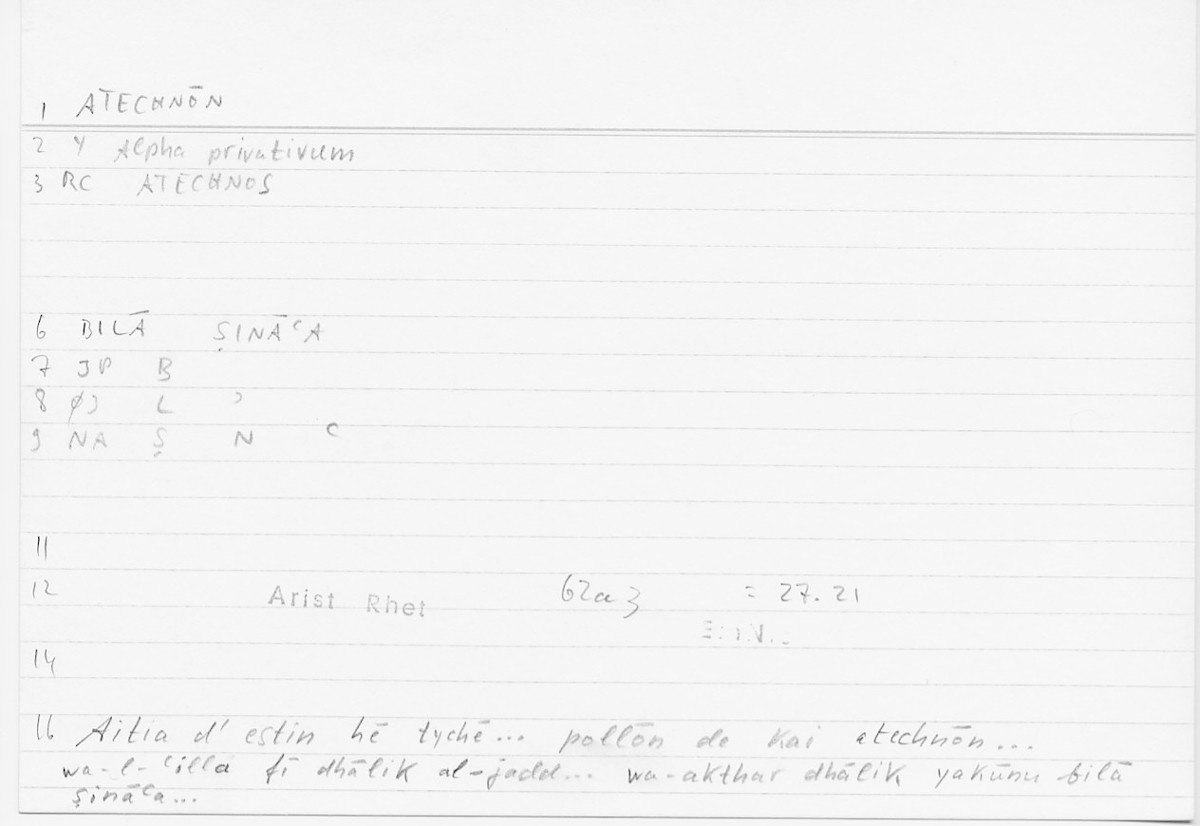 1 ATECHNŌN
2 Y Alpha privativum
3 RC ATECHNOS
6 BILĀ ṢINĀʿA
7 JP B
8 L ʾ
9 NA Ṣ N ʿ
11
12 Arist Rhet 62a3 = 27.21
14
16 Aitia d' estin hē tychē... pollōn de kai atechnōn...
wa-l-ʿilla fī dhālik al-jadd... wa-akthar dhālik yakūnu bilā
ṣināʿa...